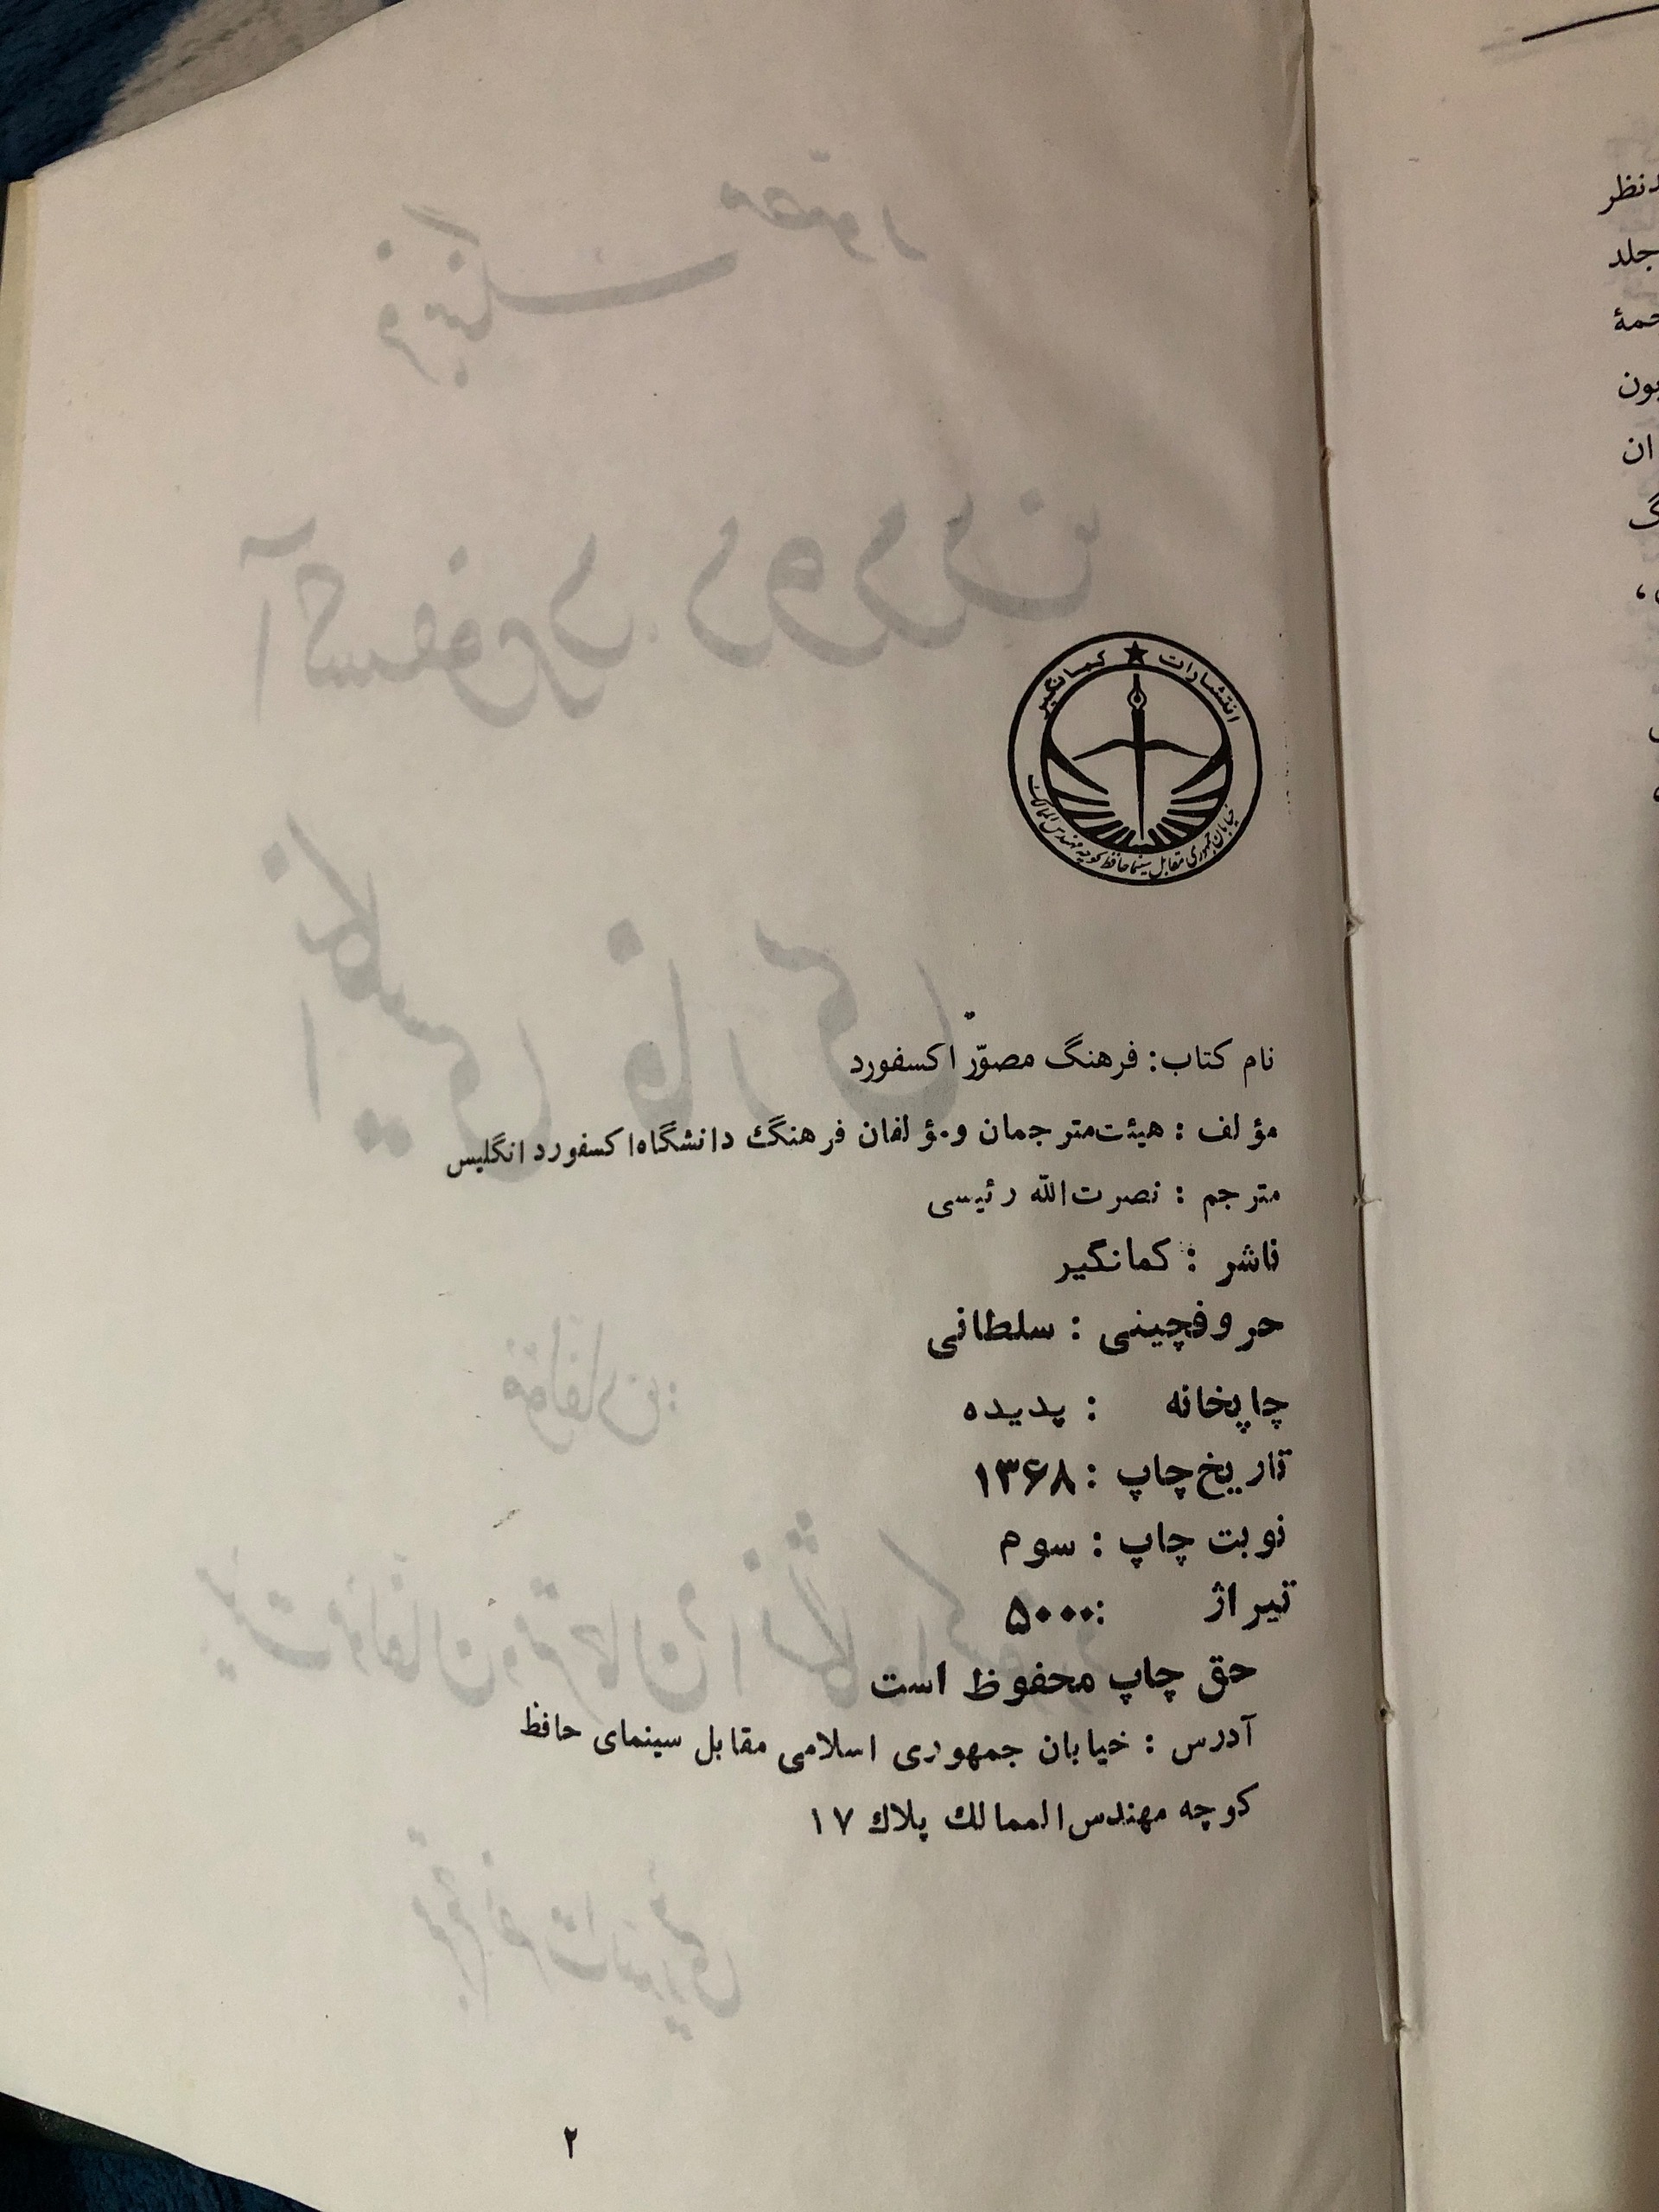 انتشارات ★ کمانگیر
خیابان جمهوری مقابل سینما حافظ کوچه مهندس الممالک
نام کتاب: فرهنگ مصوّر اکسفورد
مؤلف : هیئت‌مترجمان و مؤلفان فرهنگ دانشگاه اکسفورد انگلیس
مترجم : نصرت‌الله رئیسی
ناشر : کمانگیر
حروفچینی : سلطانی
چاپخانه : پدیده
تاریخ چاپ : ۱۳۶۸
نوبت چاپ : سوم
تیراژ : ۵۰۰۰
حق چاپ محفوظ است
آدرس : خیابان جمهوری اسلامی مقابل سینمای حافظ
کوچه مهندس‌الممالک پلاک ۱۷
۲
جلد
ان